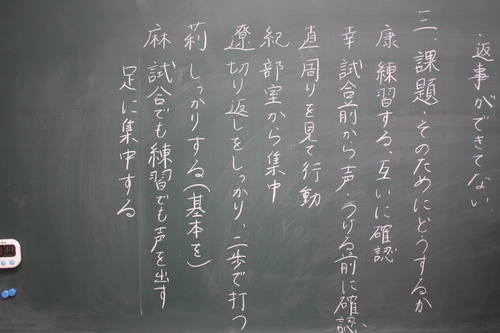 ・返事ができてない
三、課題・そのためにどうするか
康 練習する、互いに確認
幸 試合前から声 つける前に確認
直 周りを見て行動
紀 部室から集中
遼 切り返しをしっかり、二歩で打つ
莉 しっかりする(基本を)
麻 試合でも練習でも声を出す
足に集中する